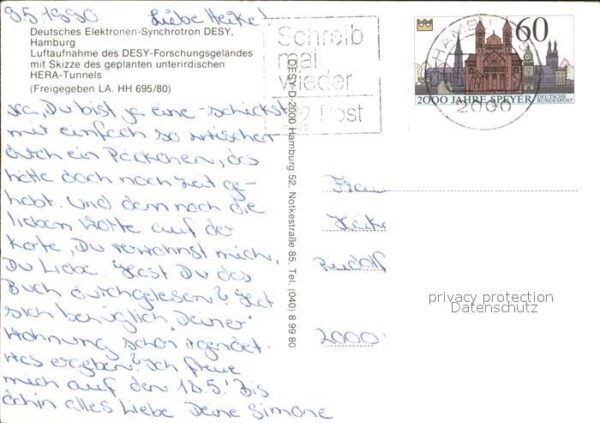 9.5.1990 Liebe Heike!
Deutsches Elektronen-Synchrotron DESY,
Hamburg
Luftaufnahme des DESY-Forschungsgeländes
mit Skizze des geplanten unterirdischen
HERA-Tunnels
(Freigegeben LA. HH 695/80)
Na, Du bist ja eine - schickst
mir einfach so zwischen
durch ein Päckchen, das
hätte doch noch Zeit ge-
habt. Und dann noch die
lieben Worte auf der
Karte, Du verwöhnst mich,
Du Liebe. Hast Du das
Buch durchgelesen? Hat
sich bezüglich Deiner
Wohnung schon irgendet-
was ergeben? Ich freue
mich auf den 18.5.! Bis
dahin alles Liebe Deine Simone
DESY D-2000 Hamburg 52, Notkestraße 85, Tel. (040) 8 99 80
Schreib
mal
wieder
Post
HAMBURG
2000
60
2000 JAHRE SPEYER
DEUTSCHE
BUNDESPOST
Frau
Heike
Rudolf
2000
privacy protection
Datenschutz